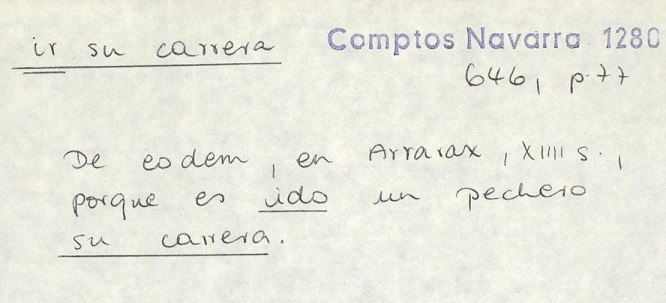 ir su carrera
Comptos Navarra 1280
646, p. 77
De eodem, en Ararax, XIIII s.,
porque es ido un pechero
su carrera.